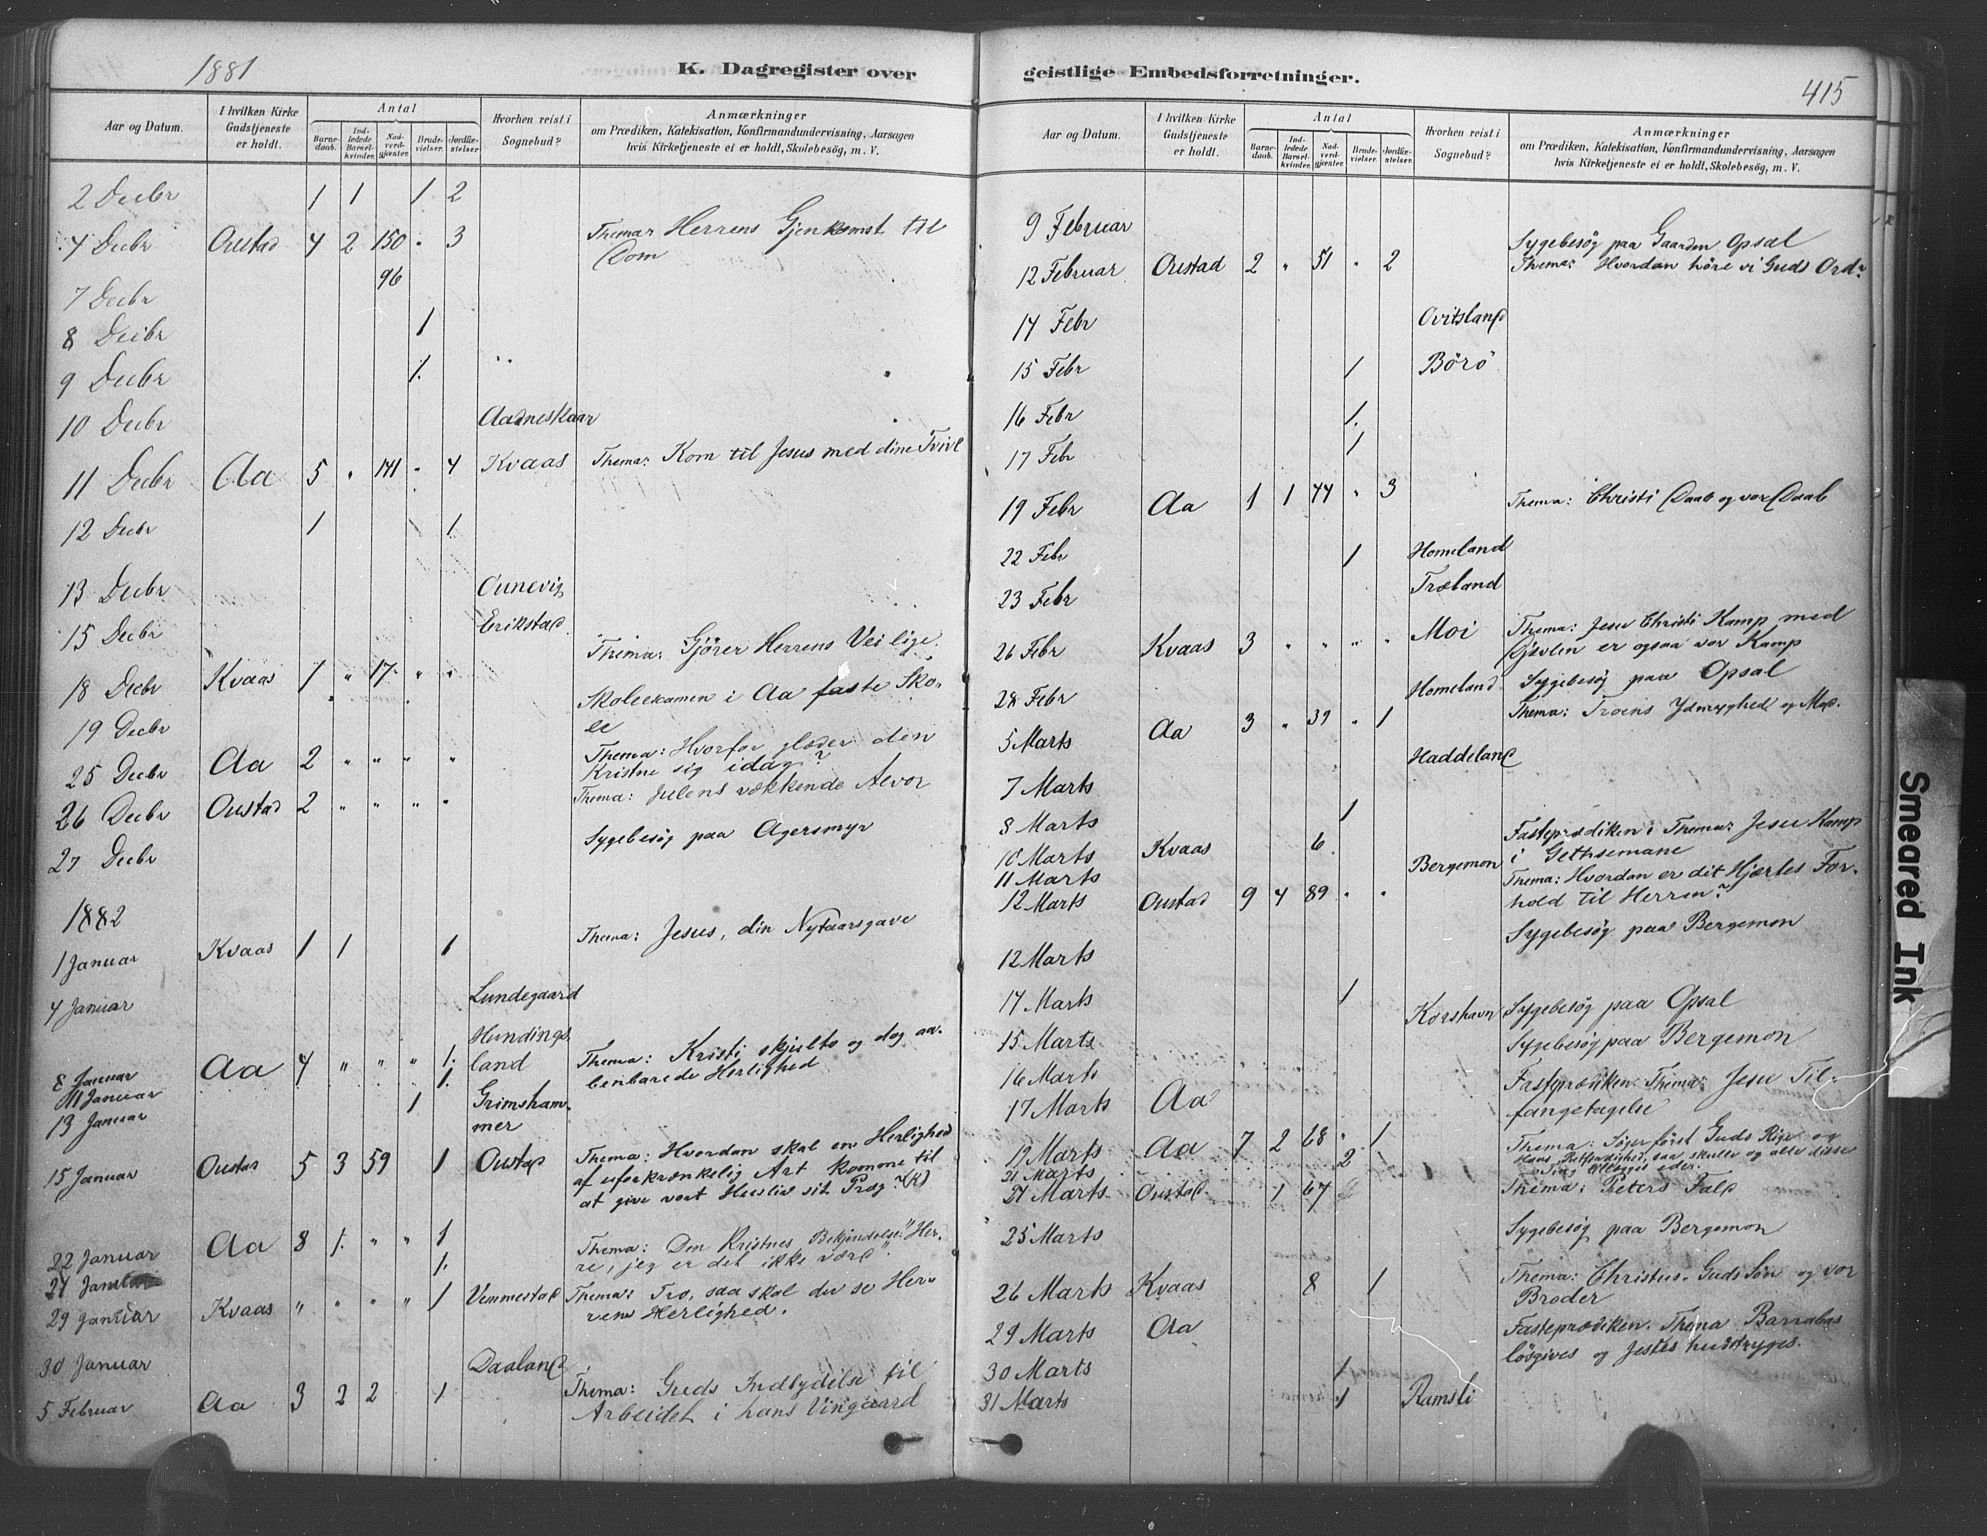 1881
K. Dagregister over
Aar og Datum.
I hvilken Kirke Gudstjeneste er holdt.
Antal
Barnedaab.
Indledede Barselkvinder.
Nadverdgjæster.
Brudevielser.
Jordfæstelser
Hvorhen reist i Sognebud?
Anmærkninger
om Prædiken, Katekisation, Konfirmandundervisning, Aarsagen
hvis Kirketjeneste ei er holdt, Skolebesøg, m. V.
2 Decbr 1 1 1 2
4 Decbr Oustad 4 2 150 " 3 Thema: Herrens Gjenkomst til
96 Dom
7 Decbr
8 Decbr 1
9 Decbr 1.
10 Decbr Aadneskaar
11 Decbr Aa 5 " 141 " 4 Kvaas Thema: Kom til Jesus med dine Tvivl
12 Decbr 1 1.
13 Decbr Ounevig
15 Decbr Erikstad
18 Decbr Kvaas 1 " 17 " " Thema: Gjörer Herrens Vei lige.
19 Decbr Skoleexamen i Aa faste Sko-
le
25 Decbr Aa 2 " " " " Thema: Hvorfor glæder den
Kristne sig idag?
26 Decbr Oustad 2 " " " " Thema: Julens vækkende Alvor
27 Decbr Sygebesög paa Agersmyr
1882
1 Januar Kvaas 1 1 1 Thema: Jesus, din Nytaarsgave
4 Januar Lundegaard
Hundings
8 Januar Aa 4 " " " 1. land Thema: Kristi skjulte og dog aa-
11 Januar 1. benbarede Herlighed
13 Januar 1 Grimsham-
mer
15 Januar Oustad 5 3 59 1 Oustad Thema: Hvordan skal en Herlighed
af uforkrænkelig Art komme til
at give vort Husliv sit Præg?
22 Januar Aa 8 1. " " 1 Thema: Den Kristnes Bekjendelse: "Her-
24 Januar 1. re, jeg er det ikke værd".
29 Januar Kvaas " " " " 1 Vemmestad Thema: Tro, saa skal du se Her-
rens Herlighed.
30 Januar Daaland
5 Februar Aa 3 2 2 1 Thema: Guds Indbydelse til
Arbeidet i hans Vingaard
geistlige Embedsforretninger.
415
Aar og Datum.
I hvilken Kirke Gudstjeneste er holdt.
Antal
Barnedaab.
Indledede Barselkvinder.
Nadverdgjæster.
Brudevielser.
Jordfæstelser.
Hvorhen reist i Sognebud?
Anmærkninger
om Prædiken, Katekisation, Konfirmandundervisning, Aarsagen
hvis Kirketjeneste ei er holdt, Skolebesøg, m. V.
9 Februar Sygebesög paa Gaarden Opsal
12 Februar Oustad 2 " 51 " 2 Thema: Hvordan höre vi Guds Ord?
14 Febr Qvitsland
15 Febr 1 Börö
16 Febr 1.
17 Febr 1
19 Febr Aa 1 1 44 " 3 Thema: Christi Daab og vor Daab
22 Febr 1 Homeland
23 Febr Træland
26 Febr Kvaas 3 " " " " Moi Thema: Jesu Christi Kamp med
Djævlen er ogsaa vor Kamp
28 Febr Homeland Sygebesög paa Opsal
5 Marts Aa 3 " 39 " 1 Thema: Troens Ydmyghed og Mod.
7 Marts Haddeland
8 Marts 1
10 Marts Kvaas 6 Fasteprædiken: Thema: Jesu Kamp
11 Marts Bergemon i Gethsemane
12 Marts Oustad 9 4 89 " " Thema: Hvordan er dit Hjertes For-
hold til Herren?
12 Marts Sygebesög paa Bergemon
14 Marts 1 Korshavn Sygebesög paa Opsal
15 Marts Sygebesög paa Bergemon
16 Marts
17 Marts Aa Fasteprædiken. Thema: Jesu Til-
fangetagelse
19 Marts Aa 7 2 68 " 1 Thema: Söger först Guds Rige og
hans Retfærdighed, saa skulle og alle disse
21 Marts 2 Ting tillægges eder.
24 Marts Oustad 1 67 Thema: Peters Fald
25 Marts Sygebesög paa Bergemon
26 Marts Kvaas 8 1 Thema: Christus Guds Sön og vor
Broder
29 Marts Aa Fasteprædiken. Thema Barrabas
lösgives og Jesus hudstryges.
30 Marts 1
31 Marts 1 Ramsli
Smeared Ink